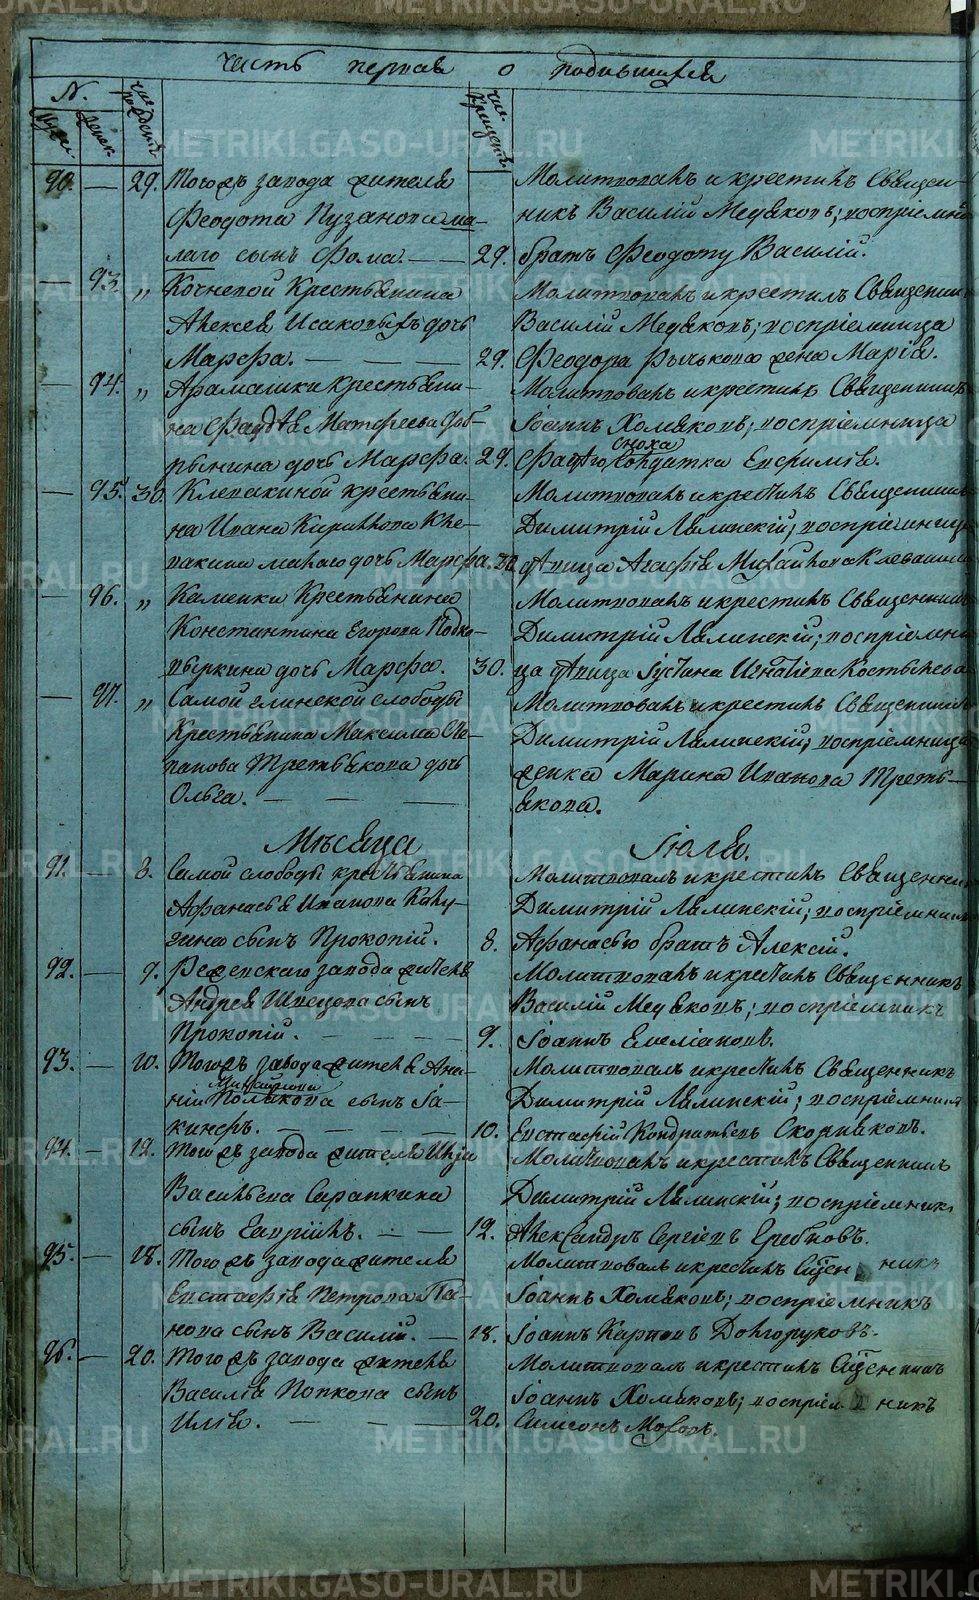 часть первая о родившихся
N.
муж.
женск.
чис. рождет.
чис. крещет.
90. — 29. Того жъ завода жителя
Феодота Пузанова ма-
лаго сынъ Фома. — — 29.
Молитвовалъ и крестилъ Священ-
никъ Василій Медяковъ; воспріемник
братъ Феодоту Василій.
— 93. „ Кочневой Крестьянина
Алексея Исаковыхъ дочь
Марфа. — — — 29.
Молитвовалъ и крестилъ Священник
Василій Медяковъ; воспріемница
Феодора Рычькова жена Марія.
— 94. „ Арамашки крестьяни-
на Фадѣя Матфеева
дочь Марфа. 29.
Молитвовалъ и крестилъ Священникъ
Іоаннъ Хомяковъ; воспріемница
сноха
солдатка Евфимія.
— 95. 30. Клевакиной крестьяни-
на Ивана Кирилова Кле-
вакина малаго дочь Марфа. 30.
Молитвовалъ и крестилъ Священник
Димитрій Ляпинскій; воспріемница
дѣвица Агафія Михайлова Клевакина
— 96. „ Каменки Крестьянина
Константина Егорова Подко-
выркина дочь Марфа. 30.
Молитвовалъ и крестилъ Священник
Димитрій Ляпинскій; воспріемни-
ца дѣвица Іустина Игнатіева
— 97. „ Самой глинской слободы
Крестьянина Максима Сте-
панова Третьякова дочь
Ольга. — — —
Молитвовалъ и крестилъ Священник
Димитрій Ляпинскій; воспріемница
женка Марина Иванова Треть-
якова.
Мѣсяца Іюля.
91. — 8. Самой слободы крестьянина
Афанасья Иванова Калу-
гина сынъ Прокопій. 8.
Молитвовалъ и крестилъ Священник
Димитрій Ляпинскій; воспріемник
Афанасью братъ Алексій.
92. — 9. Режевскаго завода жителя
Андрея Швецова сынъ
Прокопій. — — 9.
Молитвовалъ и крестилъ Священникъ
Василій Медяковъ; воспріемникъ
Іоаннъ Емеліановъ.
93. — 10. Того жъ завода жителя Ана-
Михайлова
ніи Полякова сынъ Іа-
кинфъ. — — — 10.
Молитвовалъ и крестилъ Священникъ
Димитрій Ляпинскій; воспріемник
Евстафій Кондратьевъ Скорняковъ.
94. — 12. Того жъ завода жителя
Васильева Сарапкина
сынъ Гавріилъ. — — 12.
Молитвовалъ и крестилъ Священникъ
Димитрій Ляпинскій; воспріемник
Александръ Сергіевъ
95. — 18. Того жъ завода жителя
Евстафія Петрова Па-
нова сынъ Василій. — 18.
Молитвовалъ и крестилъ Сщенникъ
Іоаннъ Хомяковъ; воспріемникъ
Іоаннъ Карповъ Долгоруковъ.
96. — 20. Того жъ завода жителя
Василія Попкова сынъ
Илія. — — — 20.
Молитвовалъ и крестилъ Сщенникъ
Іоаннъ Хомяковъ; воспріемникъ
Симеонъ Моховъ.
METRIKI.GASO-URAL.RU